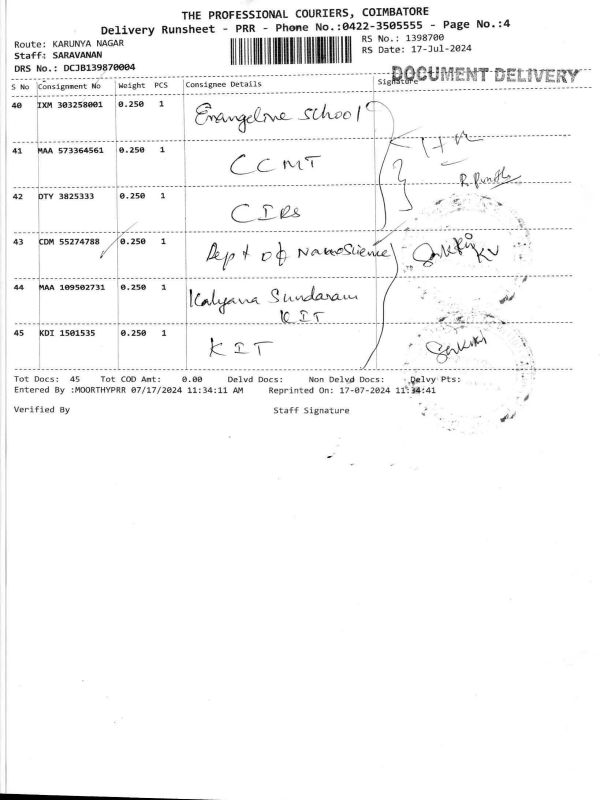 THE PROFESSIONAL COURIERS, COIMBATORE
Delivery Runsheet - PRR - Phone No.:0422-3505555 - Page No.:4
Route: KARUNYA NAGAR
RS No.: 1398700
Staff: SARAVANAN
RS Date: 17-Jul-2024
DRS No.: DCJB139870004
DOCUMENT DELIVERY
S No Consignment No Weight PCS Consignee Details Signature
40 IXM 303258001 0.250 1 Evangeline School
41 MAA 573364561 0.250 1 CCMT
42 DTY 3825333 0.250 1 CIRS
43 CDM 55274788 0.250 1 Dept of NanoScience
44 MAA 109502731 0.250 1 Kalyana Sundaram
KIT
45 KDI 1501535 0.250 1 KIT
Tot Docs: 45 Tot COD Amt: 0.00 Delvd Docs: Non Delvd Docs: Delvy Pts:
Entered By :MOORTHYPRR 07/17/2024 11:34:11 AM Reprinted On: 17-07-2024 11:34:41
Verified By Staff Signature